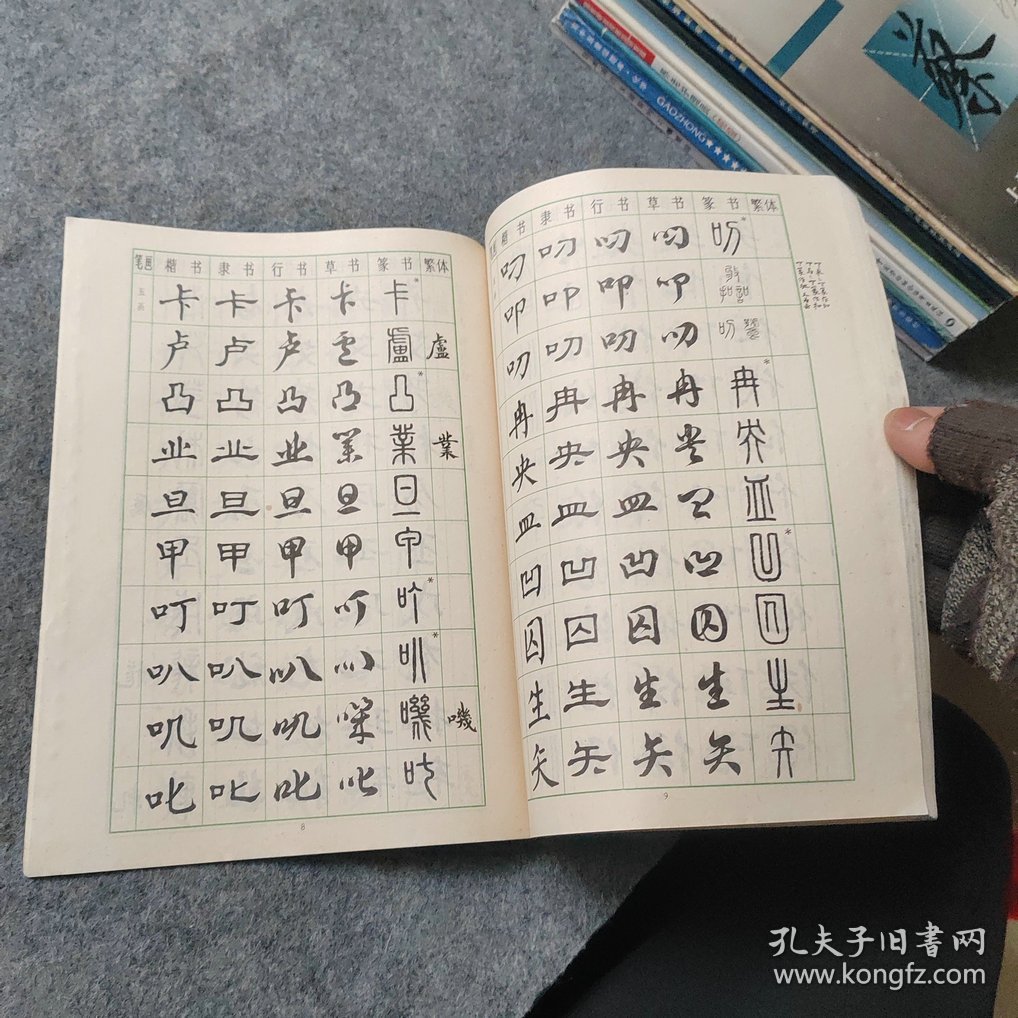 笔画 楷书 隶书 行书 草书 篆书 繁体
五画 卡 卡 卡 卡 卡*
卢 卢 卢 卢 盧 盧
凸 凸 凸 凸 凸*
业 业 业 业 業 業
旦 旦 旦 旦 旦
甲 甲 甲 甲 甲
叮 叮 叮 叮 叮*
叭 叭 叭 叭 叭*
叽 叽 叽 叽 嘰 嘰
叱 叱 叱 叱 叱
8
楷书 隶书 行书 草书 篆书 繁体
叨 叨 叨 叨 叨*
叩 叩 叩 叩
叨 叨 叨 叨
冉 冉 冉 冉 冉*
央 央 央 央 央
皿 皿 皿 皿 皿
凹 凹 凹 凹 凹*
囚 囚 囚 囚 囚
生 生 生 生 生
矢 矢 矢 矢 矢
9
GAOZHONG★★★★★
孔夫子旧书网
www.kongfz.com